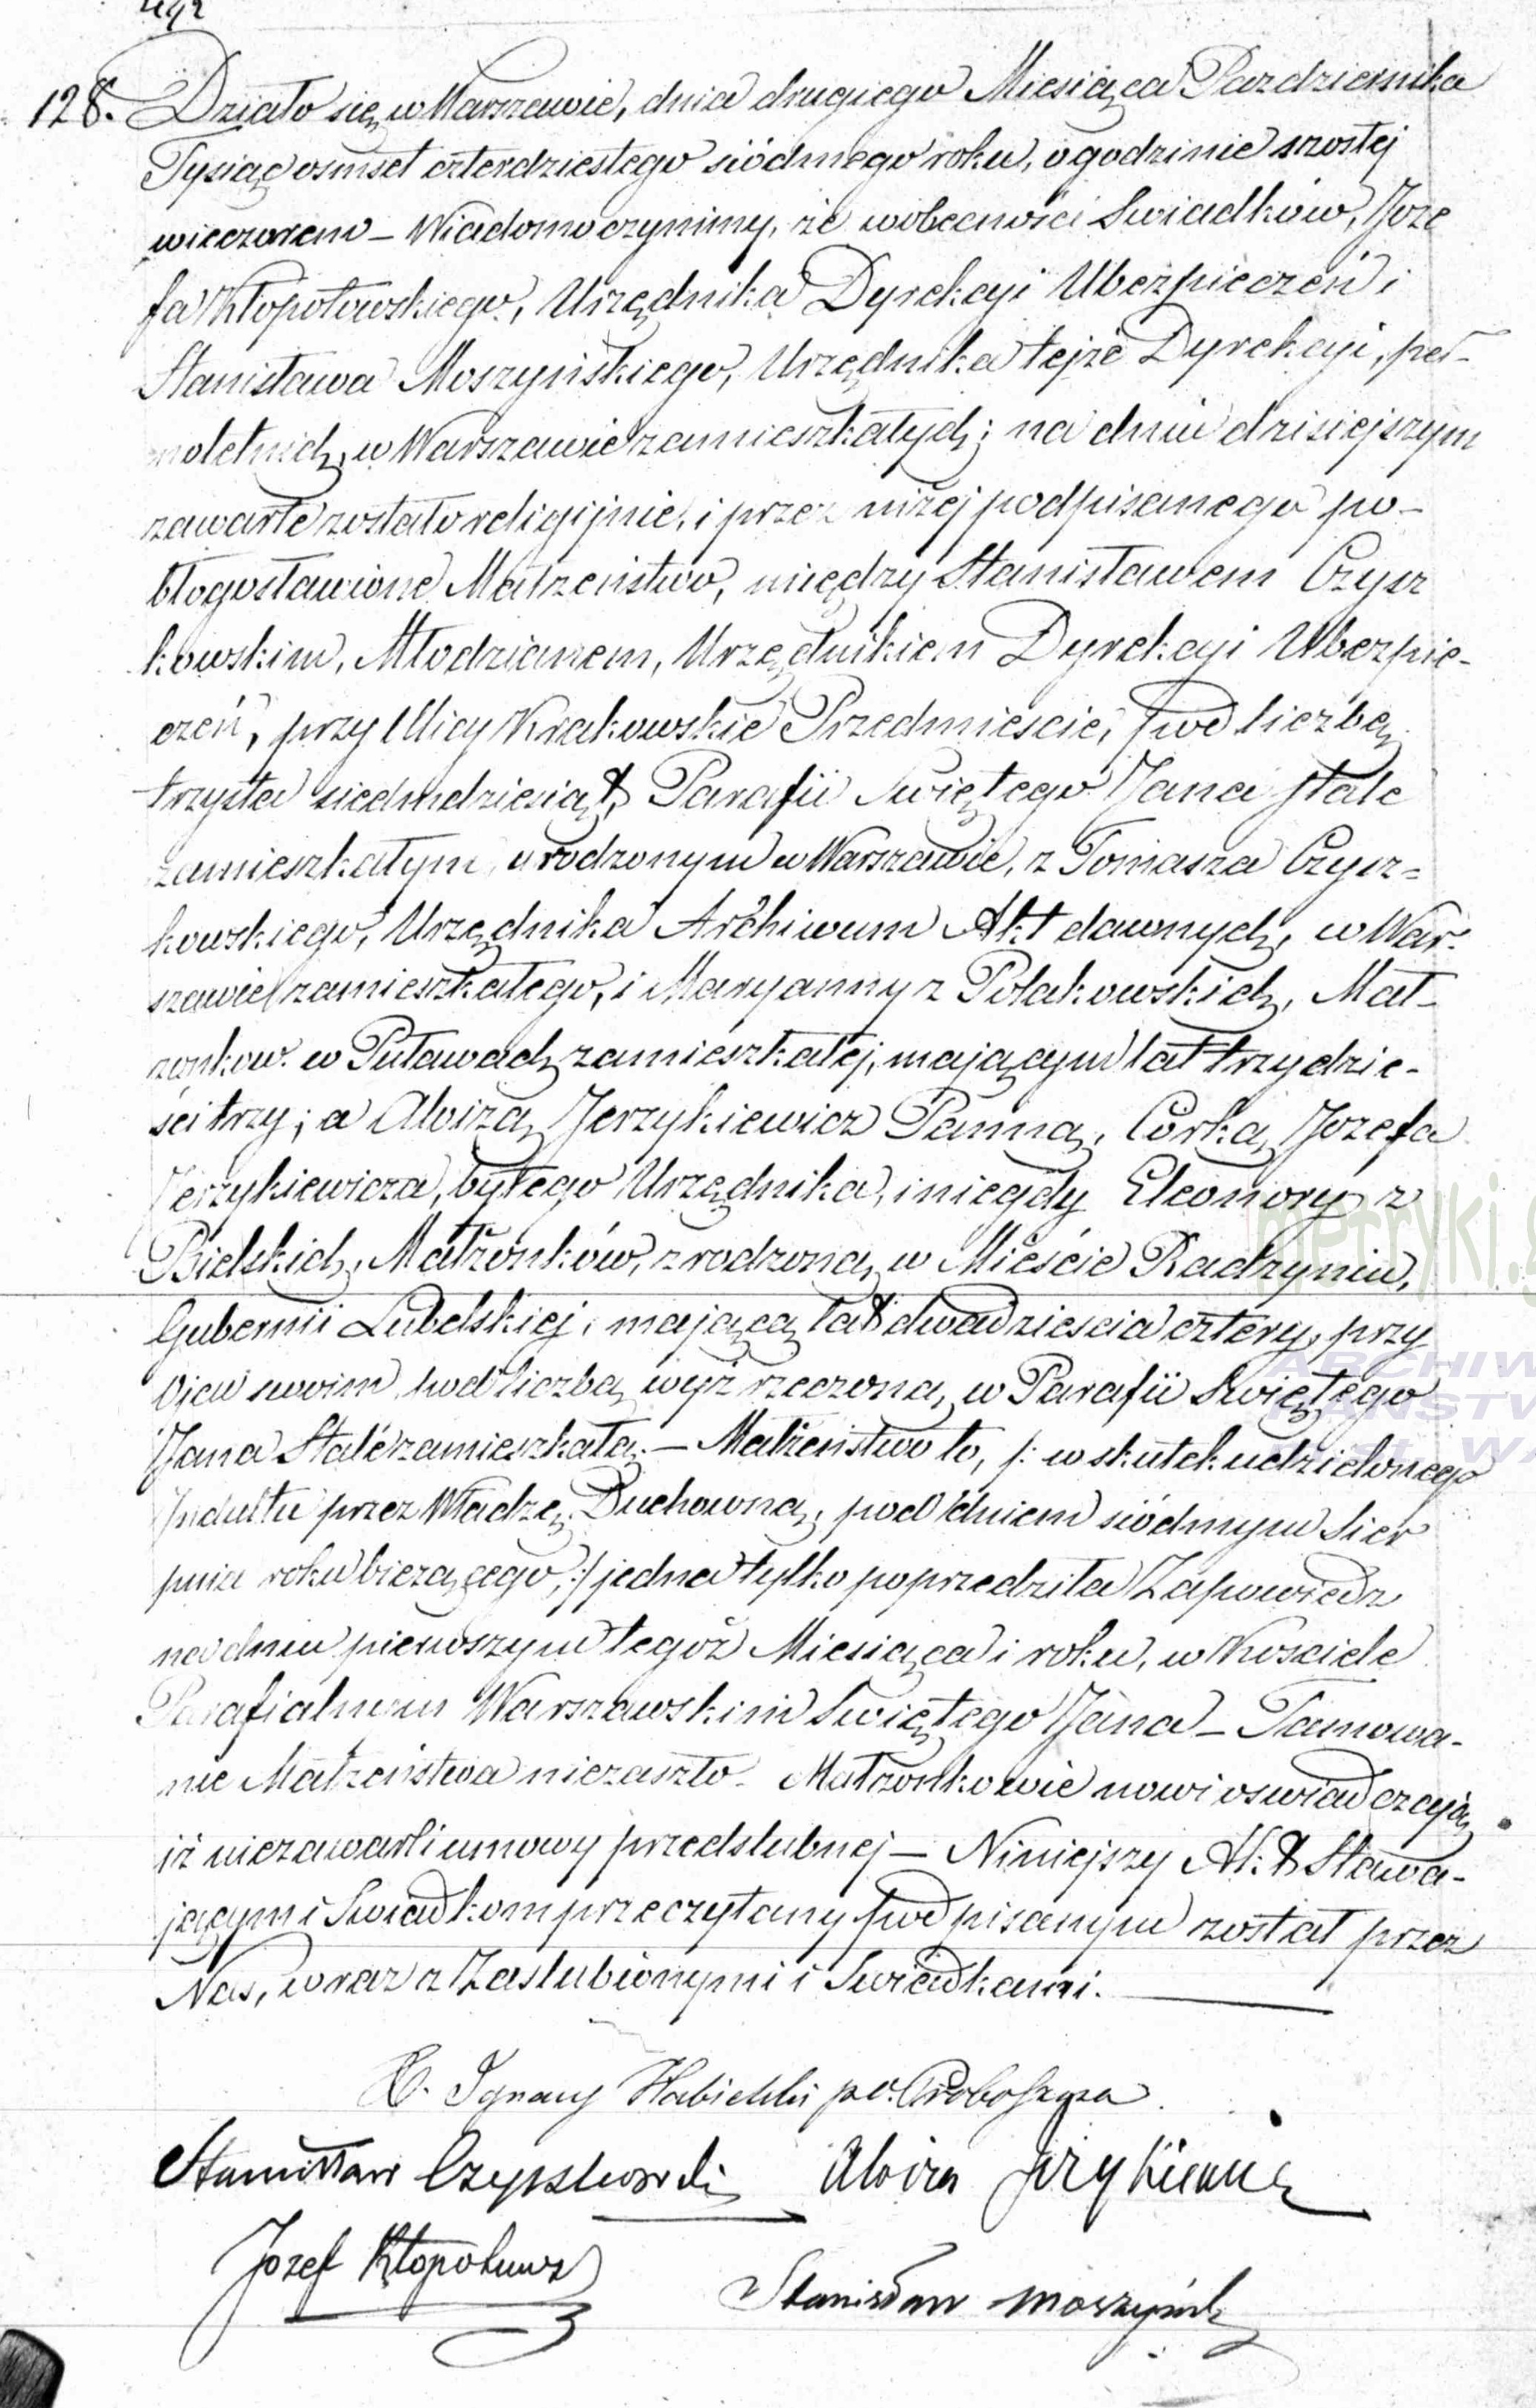 128. Działo się w Warszawie, dnia drugiego Miesiąca Pazdziernika
Tysiąc osmset czterdziestego siódmego roku, o godzinie szostej
wieczorem – Wiadomo czynimy, że w obecności Swiadków, Joze
fa Kłopotowskiego, Urzędnika Dyrekcyi Ubezpieczeń i
Stanisława Moszyńskiego, Urzędnika tejże Dyrekcyi, peł-
noletnich, w Warszawie zamieszkałych; na dniu dzisiejszym
zawarte zostało religijnie, i przez niżej podpisanego po-
błogosławione Małżeństwo, między Stanisławem Czysz
kowskim, Młodzianem, Urzędnikiem Dyrekcyi Ubezpie-
czeń, przy Ulicy Krakowskie Przedmieście, pod liczbą
trzysta siedmdziesiąt, Parafii Swiętego Jana stale
zamieszkałym, urodzonym w Warszawie, z Tomasza Czysz-
kowskiego, Urzędnika Archiwum Akt dawnych, w War-
szawie zamieszkałego, i Maryanny z Polakowskich, Mał-
żonków. w Puławach zamieszkałej, mającym lat trzydzie-
ści trzy; a Alvizą Jerzykiewicz Panną, Córką Jozefa
Jerzykiewicza, byłego Urzędnika, i niegdy Eleonory z
Bielskich, Małżonków, zrodzoną w Mieście Radzyniu,
Gubernii Lubelskiej, mającą lat dwadzieścia cztery, przy
Ojcu swoim pod liczbą wyż rzeczoną, w Parafii Swiętego
Jana Stale zamieszkałą. – Małżeństwo to, /: w skutek udzielonego
Indultu przez Władzę Duchowną, pod dniem siódmym Sier
pnia roku bieżącego, :/ jedna tylko poprzedziła Zapowiedz
na dniu pierwszym tegoż Miesiąca i roku, w Kosciele
Parafialnym Warszawskim Swiętego Jana – Tamowa-
nie Małżeństwa niezaszło – Małżonkowie nowi oswiadczają
iż niezawarli umowy przedslubnej – Niniejszy Akt Stawa-
jącym i Swiadkom przeczytany podpisanym został przez
Nas, wraz z Zaslubionymi i Swiadkami.
X. Ignacy po. Proboszcza
Stanisław Czyszkowski Alviza Jerzykiewicz
Jozef Kłopotows
Stanisław Moszyńsk
metryki.g
ARCHIW
PAŃSTW